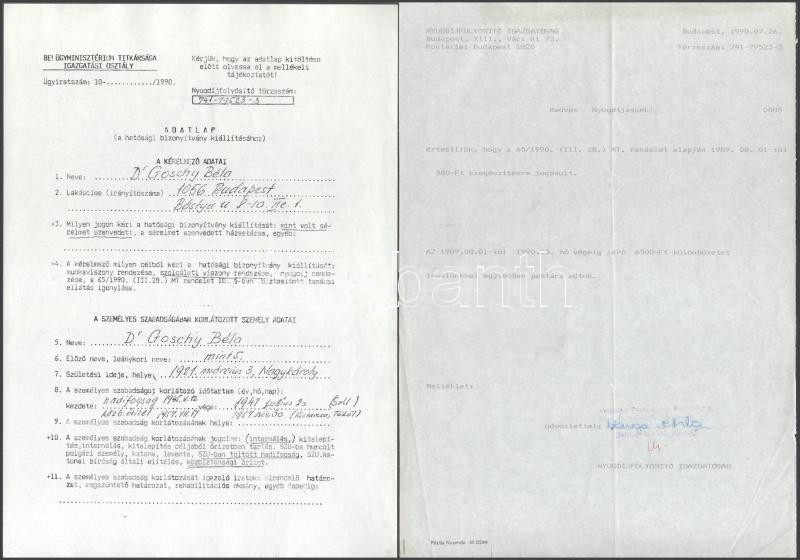 BELÜGYMINISZTÉRIUM TITKÁRSÁGA
IGAZGATÁSI OSZTÁLY
Ügyiratszám: 10-............/1990.
Kérjük, hogy az adatlap kitöltése
előtt olvassa el a mellékelt
tájékoztatót!
Nyugdíjfolyósító törzsszám:
741-79523-3
A D A T L A P
(a hatósági bizonyítvány kiállításához)
A KÉRELMEZŐ ADATAI
1. Neve: Dr Goschy Béla
2. Lakáscíme (irányítószáma) 1056 Budapest
Bástya u 8-10 IIe. 1.
+3. Milyen jogon kéri a hatósági bizonyítvány kiállítását: mint volt sé-
relmet szenvedett, a sérelmet szenvedett házastársa, egyéb:
+4. A kérelmező milyen célból kéri a hatósági bizonyítvány kiállítását:
munkaviszony rendezése, szolgálati viszony rendezése, nyugdíj rende-
zése, a 65/1990. (III.28.) MT rendelet 10. §-ban biztosított tanácsi
ellátás igénylése.
A SZEMÉLYES SZABADSÁGÁBAN KORLÁTOZOTT SZEMÉLY ADATAI
5. Neve: Dr Goschy Béla
6. Előző neve, leánykori neve: mint 5.
7. Születési ideje, helye: 1921. március 3, Nagykároly
8. A személyes szabadságot korlátozó időtartam (év,hó,nap):
hadifogság 1945.V.12
kezdete: vége: 1947 július 20
közb. őriz. 1957.VII.17 1957.nov.30 (Kistarcsa, Tököl)
9. A személyes szabadság korlátozásának helye:
+10. A személyes szabadság korlátozásának jogcíme: (internálás,) kitelepí-
tés, internálás, kitelepítés céljából őrizetben tartás. SZU-ba hurcolt
polgári személy, katona, levente, SZU-ban töltött hadifogság, SZU.ka-
tonai bíróság általi elítélés, közbiztonsági őrizet.
+11. A személyes szabadság korlátozását igazoló iratok: elrendelő határo-
zat, megszüntető határozat, rehabilitációs okmány, egyéb éspedig:
NYUGDIJFOLYOSITO IGAZGATOSAG
Budapest, XIII., Váci út 73.
Postacím: Budapest 1820
Budapest, 1990.07.26.
Törzsszám: 741-79523-3
Kedves Nyugdíjasunk!
0005
értesítjük, hogy a 65/1990. (III. 28.) MT. rendelet alapján 1989. 08. 01-től
500-Ft kiegészítésre jogosult.
AZ 1989.08.01-től 1990. hó végéig járó 6500-Ft különbözetet
levelünkkel egyidőben postára adtuk.
Melléklet:
üdvözlettel:
NYUGDIJFOLYOSITO IGAZGATOSAG
Pátria Nyomda - M 0244
banth